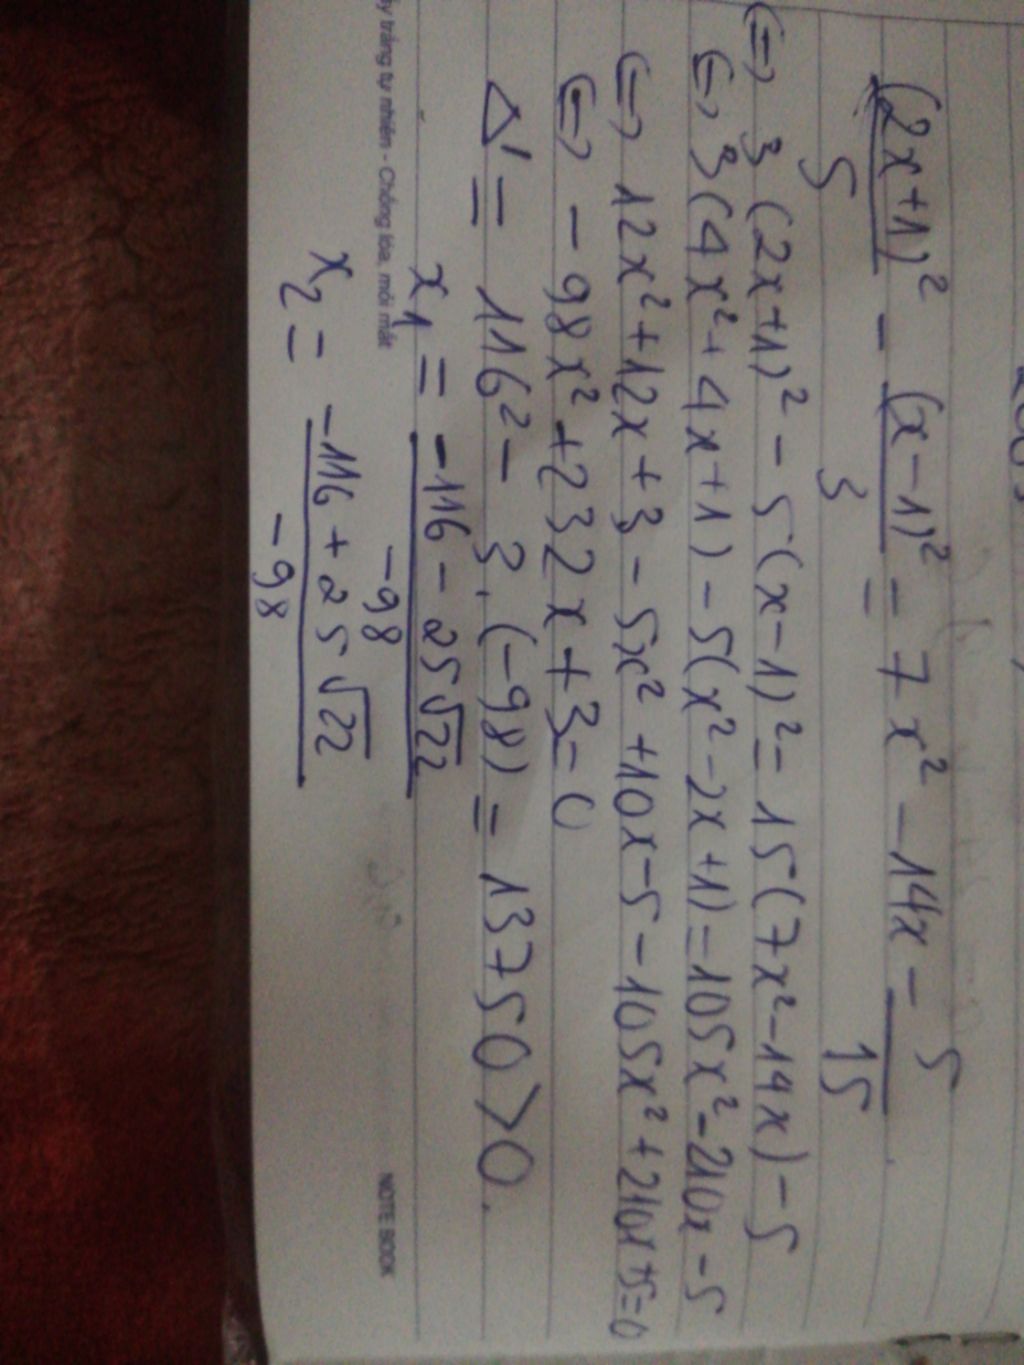 (2x+1)²/5 - (x-1)²/3 = 7x² - 14x - 5/15
⇔ 3(2x+1)² - 5(x-1)² = 15(7x² - 14x) - 5
⇔ 3(4x² + 4x + 1) - 5(x² - 2x + 1) = 105x² - 210x - 5
⇔ 12x² + 12x + 3 - 5x² + 10x - 5 - 105x² + 210x + 5 = 0
⇔ -98x² + 232x + 3 = 0
Δ' = 116² - 3.(-98) = 13750 > 0.
x₁ = (-116 - 25√22)/-98
x₂ = (-116 + 25√22)/-98
trắng tự nhiên - Chống lóa, mỏi mắt
NOTE BOOK